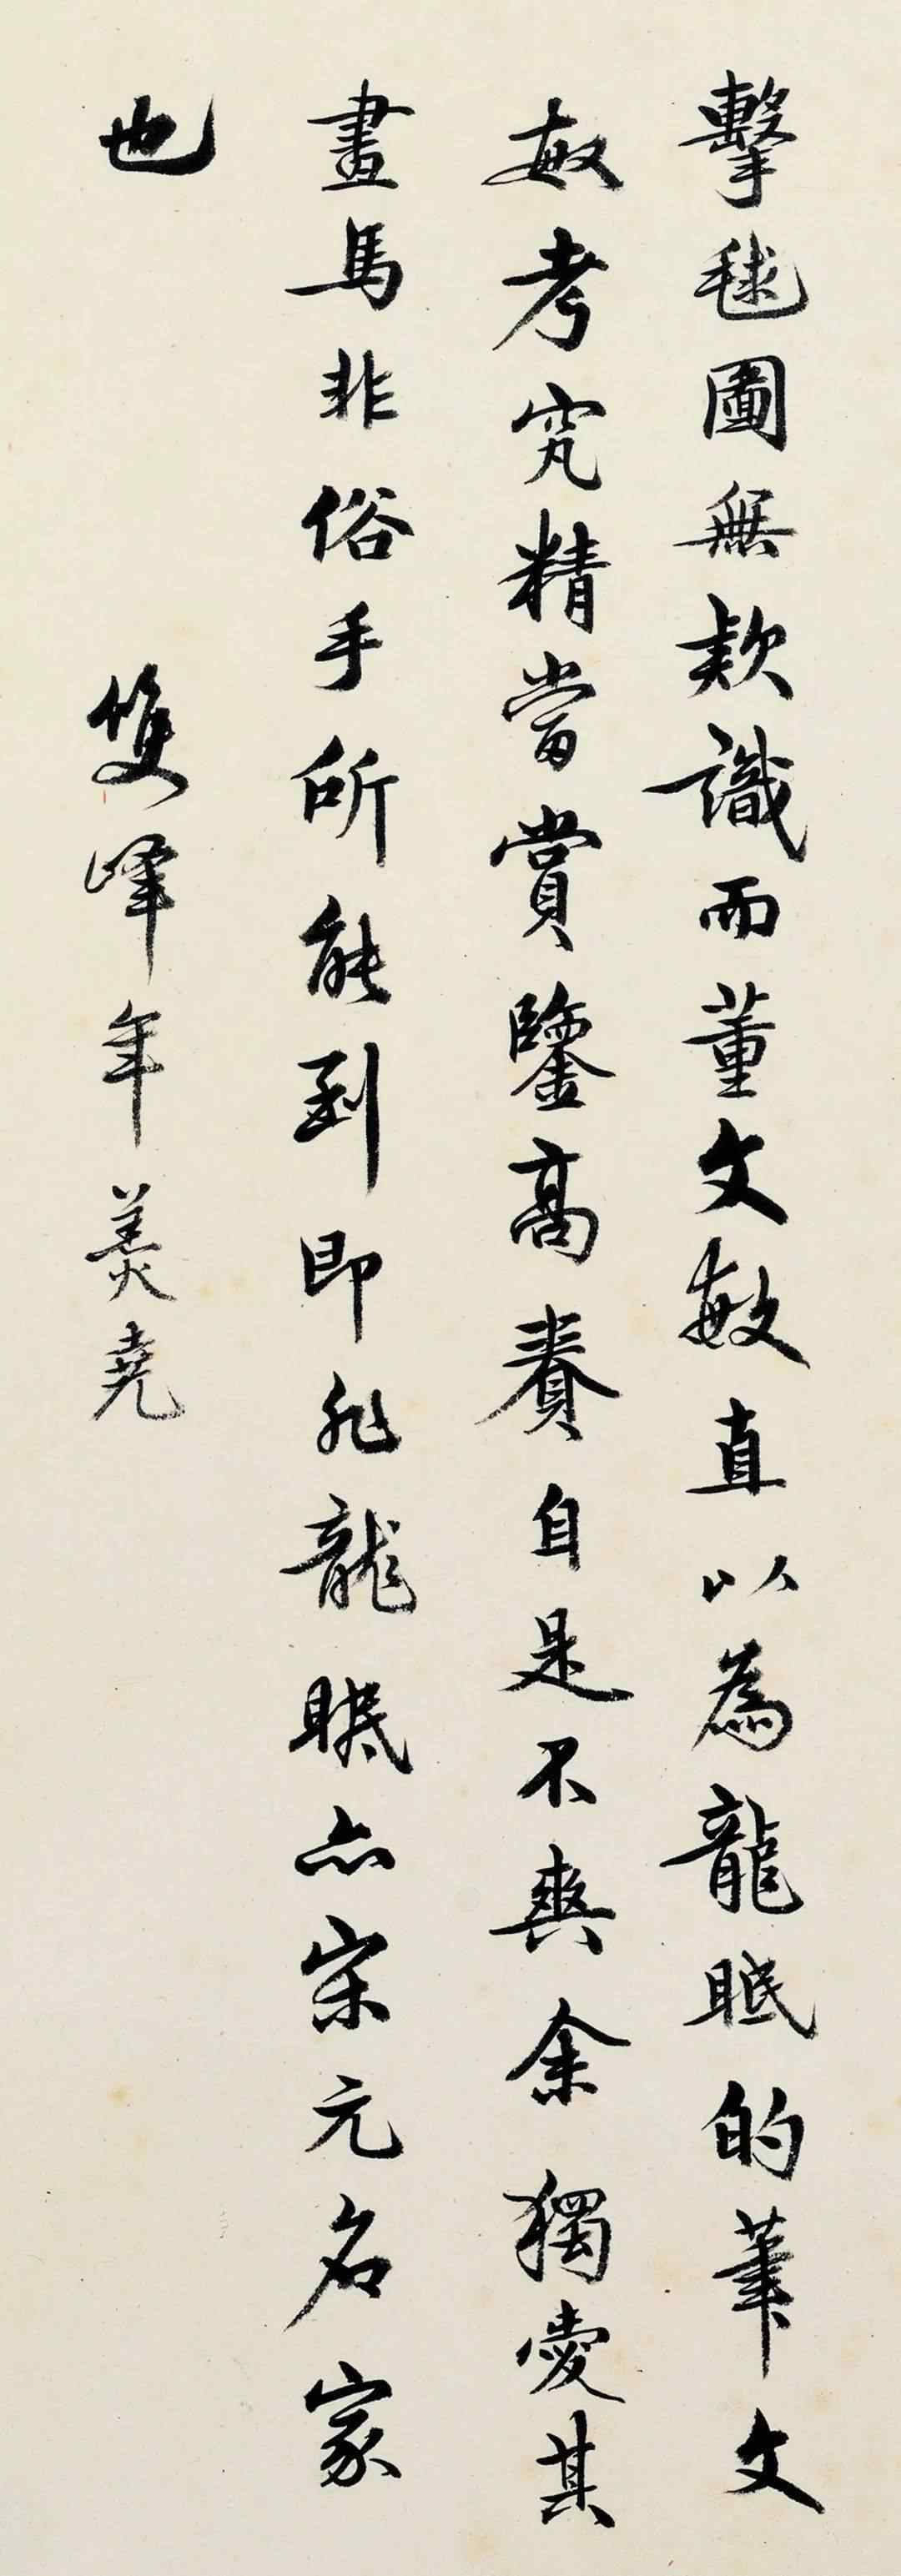 擊毬圖無欵識而董文敏直以為龍眠的筆文
敏考究精當賞鑒高賽自是不爽余獨愛其
畫馬非俗手所能到即非龍眠亦宋元名家
也 雙峰年羹堯